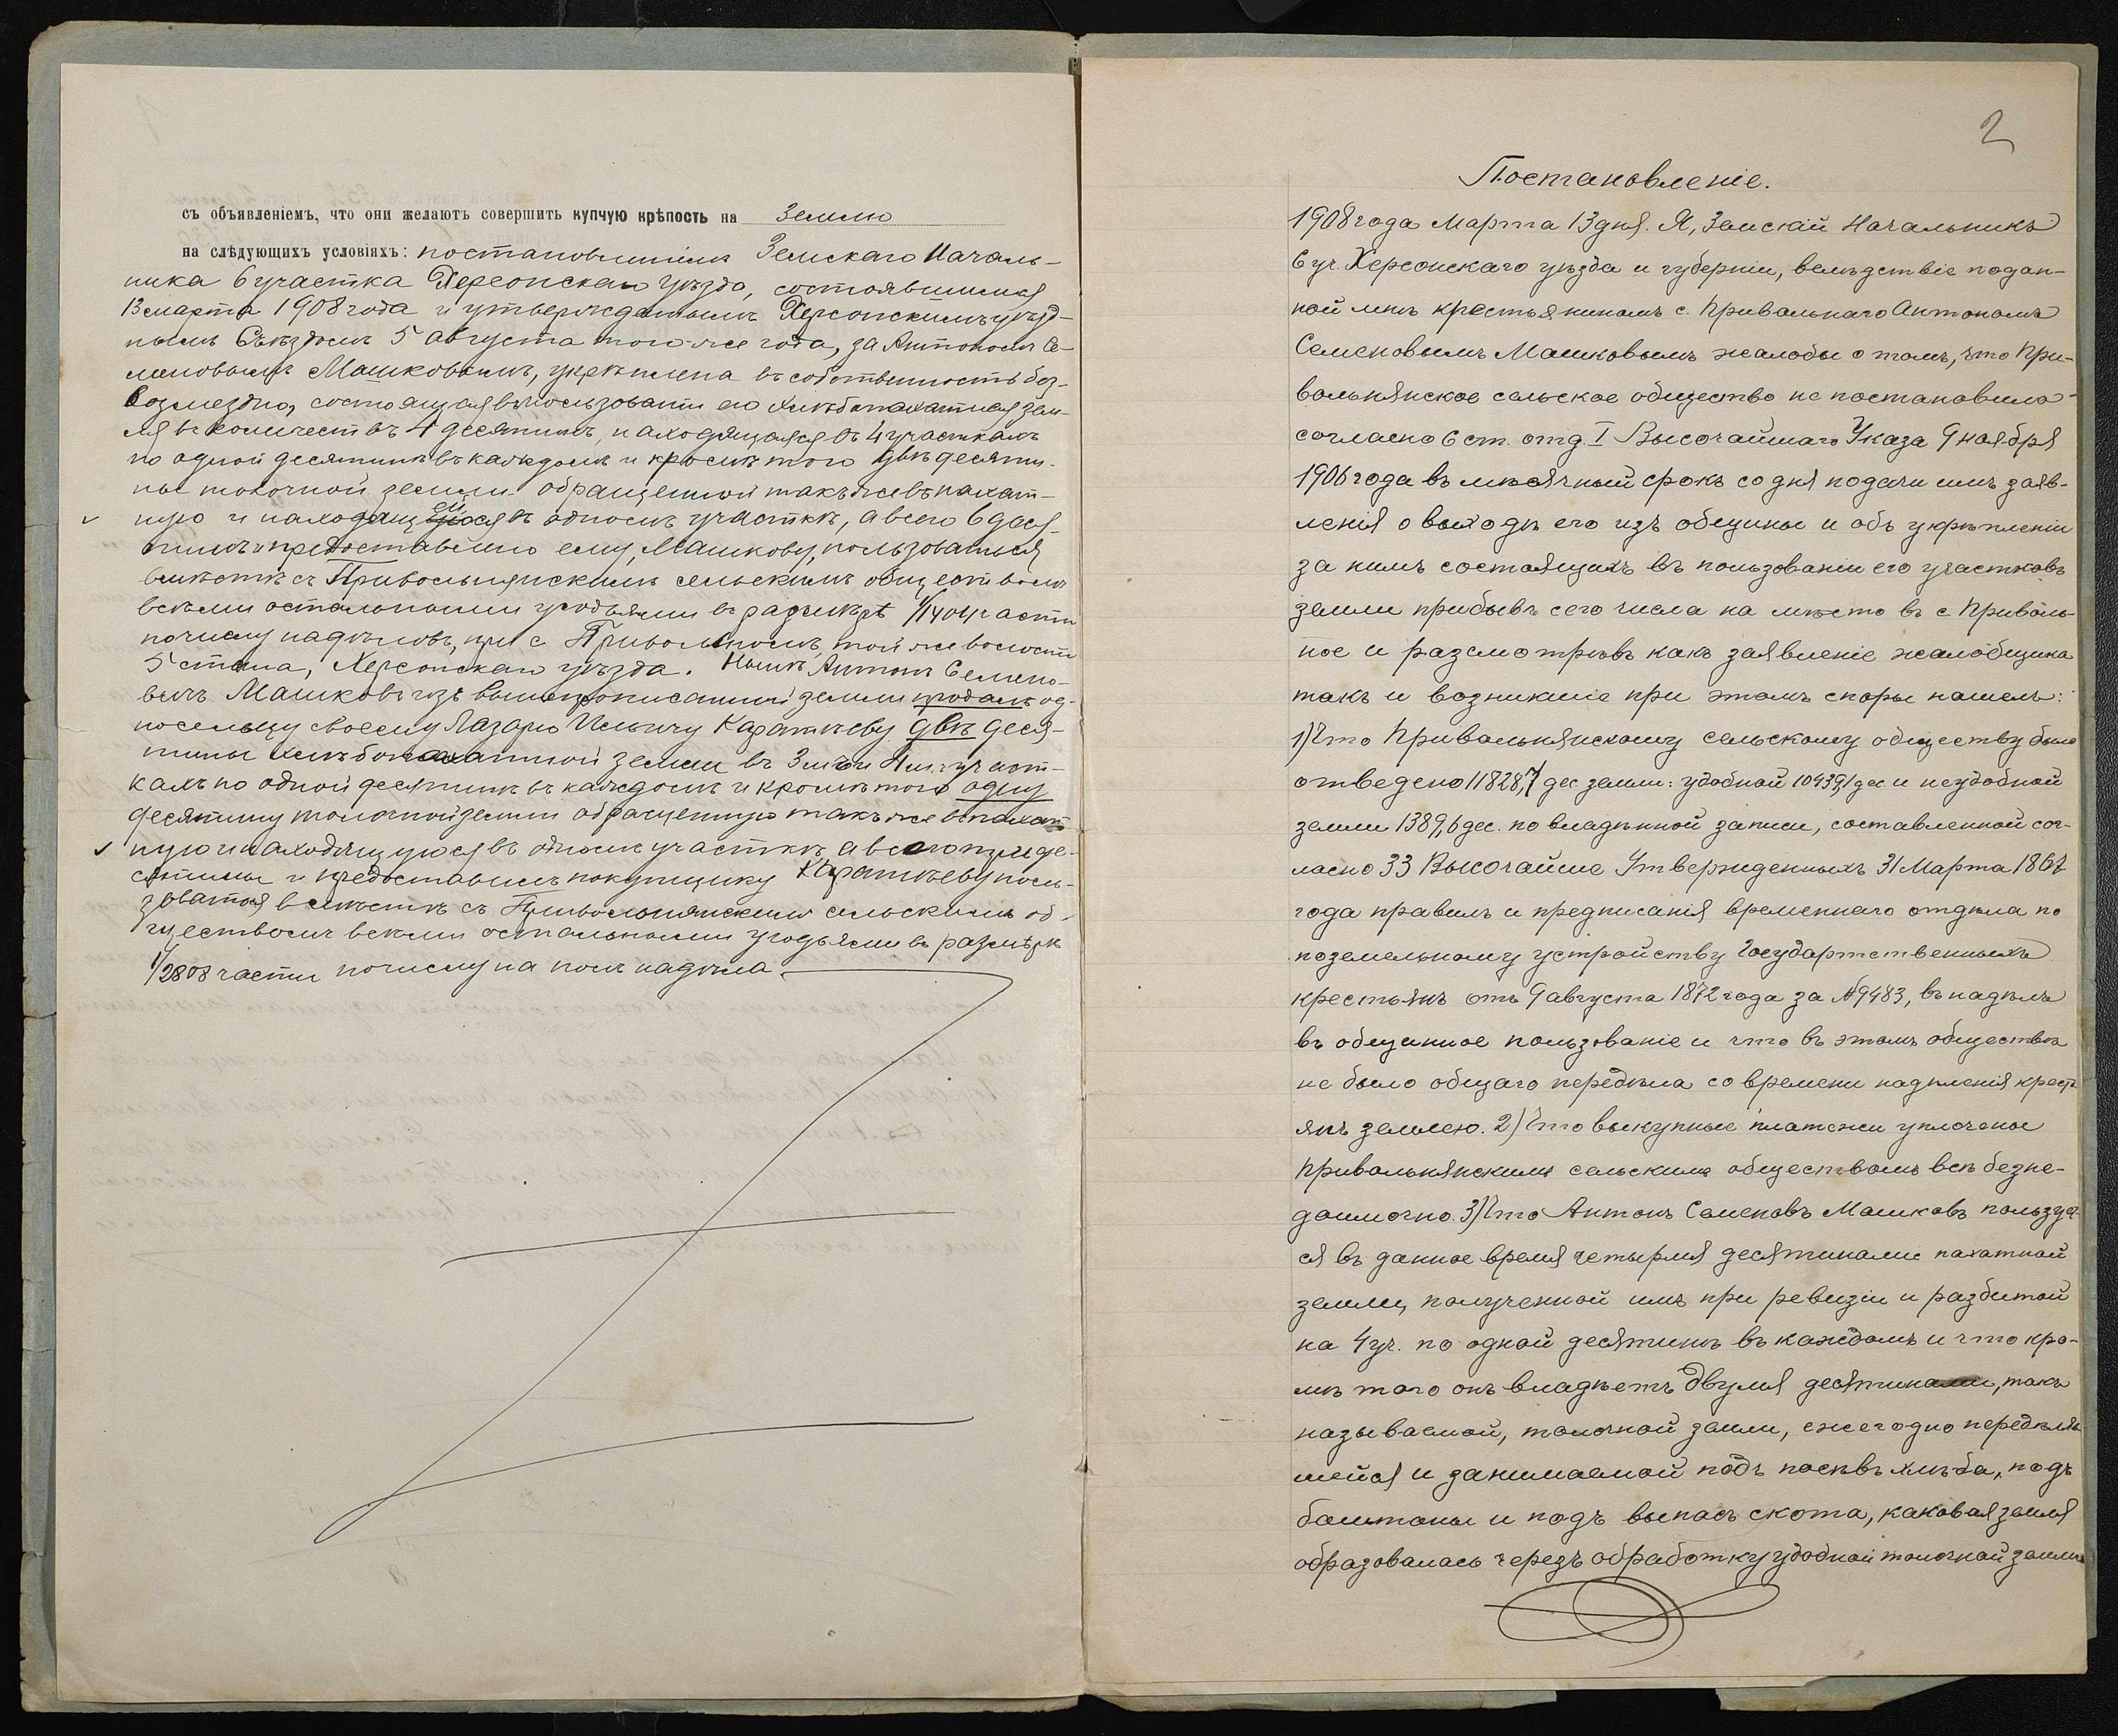 съ объявленіемъ, что они желаютъ совершить купчую крѣпость на землю
на слѣдующихъ условіяхъ: постановленіемъ Земскаго Началь-
ника 6 участка Херсонскаго уѣзда, состоявшимся
13 марта 1908 года и утвержденнымъ Херсонскимъ уѣзд-
нымъ Съѣздомъ 5 августа того-же года, за Антономъ Се-
меновымъ Машковымъ, укрѣплена въ собственность без-
возмездно, состоящая въ пользованіи его хлѣбопахатная зем-
ля въ количествѣ 4 десятинъ, находящаяся въ 4 участкахъ
по одной десятинѣ въ каждомъ и кромѣ того двѣ десяти-
ны толочной земли обращенной такъ же въ пахат-
ную и находящейся въ одномъ участкѣ, а всего 6 деся-
тинъ и предоставлено ему, Машкову, пользоваться
вмѣстѣ съ Привольнянскимъ сельскимъ обществомъ
всѣми остальными угодьями въ размѣрѣ 1/1404 части
по числу надѣловъ, при с Привольномъ, той же волости
5 стана, Херсонскаго уѣзда. Нынѣ, Антонъ Семено-
вичъ Машковъ изъ вышеописанной земли продалъ од-
носельцу своему Лазарю Ильичу Каратѣеву двѣ деся-
тины хлѣбопахатной земли въ 3мъ и 4мъ участ-
кахъ по одной десятинѣ въ каждомъ и кромѣ того одну
десятину толочной земли обращенную такъ же въ пахат-
ную и находящуюся въ одномъ участкѣ а всего три де-
сятины и предоставилъ покупщику Каратѣеву поль-
зоваться вмѣстѣ съ Привольнянскимъ сельскимъ об-
ществомъ всѣми остальными угодьями въ размѣрѣ
1/2808 части по числу на полъ надѣла
2
Постановленіе.
1908 года Марта 13 дня. Я, Земскій Начальникъ
6 уч. Херсонскаго уѣзда и губерніи, вслѣдствіе подан-
ной мнѣ крестьяниномъ с. Привольнаго Антономъ
Семеновымъ Машковымъ жалобы о томъ, что При-
вольнянское сельское общество не постановило
согласно 6 ст. отд. I Высочайшаго Указа 9 ноября
1906 года въ мѣсячный срокъ со дня подачи имъ заяв-
ленія о выходѣ его изъ общины и объ укрѣпленіи
за нимъ состоящихъ въ пользованіи его участковъ
земли прибывъ сего числа на мѣсто въ с Приволь-
ное и разсмотрѣвъ какъ заявленіе жалобщика
такъ и возникшіе при этомъ споры нашелъ:
1) Что Привольнянскому сельскому обществу было
отведено 11828,7 дес. земли: удобной 10439,1 дес. и неудобной
земли 1389,6 дес. по владѣнной записи, составленной сог-
ласно 33 Высочайше Утвержденныхъ 31 Марта 1867
года правилъ и предписанія временнаго отдѣла по
поземельному устройству Государственныхъ
крестьянъ отъ 9 августа 1872 года за № 9483, въ надѣлъ
въ общинное пользованіе и что въ этомъ обществѣ
не было общаго передѣла со времени надѣленія кресть
янъ землею. 2) Что выкупные платежи уплочены
Привольнянскимъ сельскимъ обществомъ всѣ безне-
доимочно. 3) Что Антонъ Семеновъ Машковъ пользует-
ся въ данное время четырмя десятинами пахатной
земли, полученной имъ при ревизіи и разбитой
на 4 уч. по одной десятинѣ въ каждомъ и что кро-
мѣ того онъ владѣетъ двумя десятинами, такъ
называемой, толочной земли, ежегодно передѣляв
шейся и занимаемой подъ посѣвъ хлѣба, подъ
баштаны и подъ выпасъ скота, каковая земля
образовалась черезъ обработку удобной толочной земли